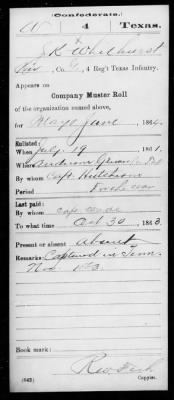 (Confederate.)
W 4 Texas.
J R Whitehurst
Co. G, 4 Reg't Texas Infantry.
Appears on
Company Muster Roll
of the organization named above,
for May & June, 1864.
Enlisted:
When July 19, 1861.
Where
By whom Capt. Hutcheson
Period war
Last paid:
By whom Capt.
To what time Oct 30, 1863.
Present or absent Absent
Remarks: Captured in Tenn.
Nov
Book mark:
(642) Copyist.